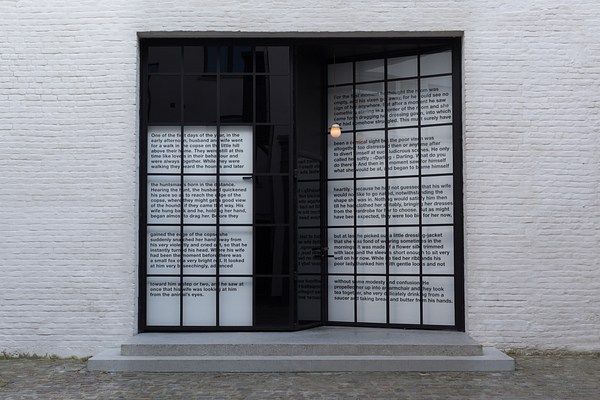 One of the first days of the year, in the
early afternoon, husband and wife went
for a walk in the copse on the little hill
above their home. They were still at this
time like lovers in their behaviour and
were always together. While they were
walking they heard the hounds and later
the huntsman's horn in the distance.
Hearing the hunt, the husband quickened
his pace so as to reach the edge of the
copse, where they might get a good view
of the hounds if they came that way. His
wife hung back and he, holding her hand,
began almost to drag her. Before they
gained the edge of the copse she
suddenly snatched her hand away from
his very violently and cried out, so that he
instantly turned his head. Where his wife
had been the moment before there was
a small fox of a very bright red. It looked
at him very beseechingly, advanced
toward him a step or two, and he saw at
once that his wife was looking at him
from the animal's eyes.
For the first moment he thought the room was
empty, and his vixen got away, for he could see no
sign of her anywhere. But after a moment he saw
something stirring in a corner of the room and she
came forth dragging her dressing gown, into which
she had somehow struggled. This must surely have
been a comical sight but the poor vixen was
altogether too distressed then or anyone after
to divert himself at such ludicrous scenes. He only
called her softly : -Darling - Darling. What do you
do there? And then in moment saw for himself
what she would be at, and began to blame himself
heartily - because he had not guessed that his wife
would not like to go naked, notwithstanding the
shape she was in. Nothing would satisfy him then
till he had clothed her suitably, bringing her dresses
from the wardrobe for her to choose. But as might
have been expected, they were too big for her now,
but at last he picked out a little dressing-jacket
that she was fond of wearing sometimes in the
morning. It was made of a flower silk trimmed
with lace and the sleeves short enough to sit very
well on her now. While he tied her ribands his
poor lady thanked him with gentle looks and not
without some modesty and confusion. He
propped her up into an armchair and they took
tea together, she very delicately drinking from a
saucer and taking bread and butter from his hands.